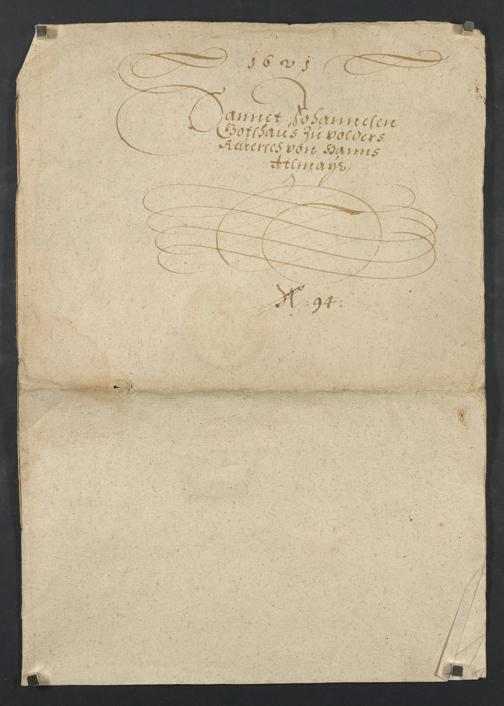 1621
Sannct Johannesen
Gotshaus zu volders
Reversch von Hanns
Atlmayr
N: 94: